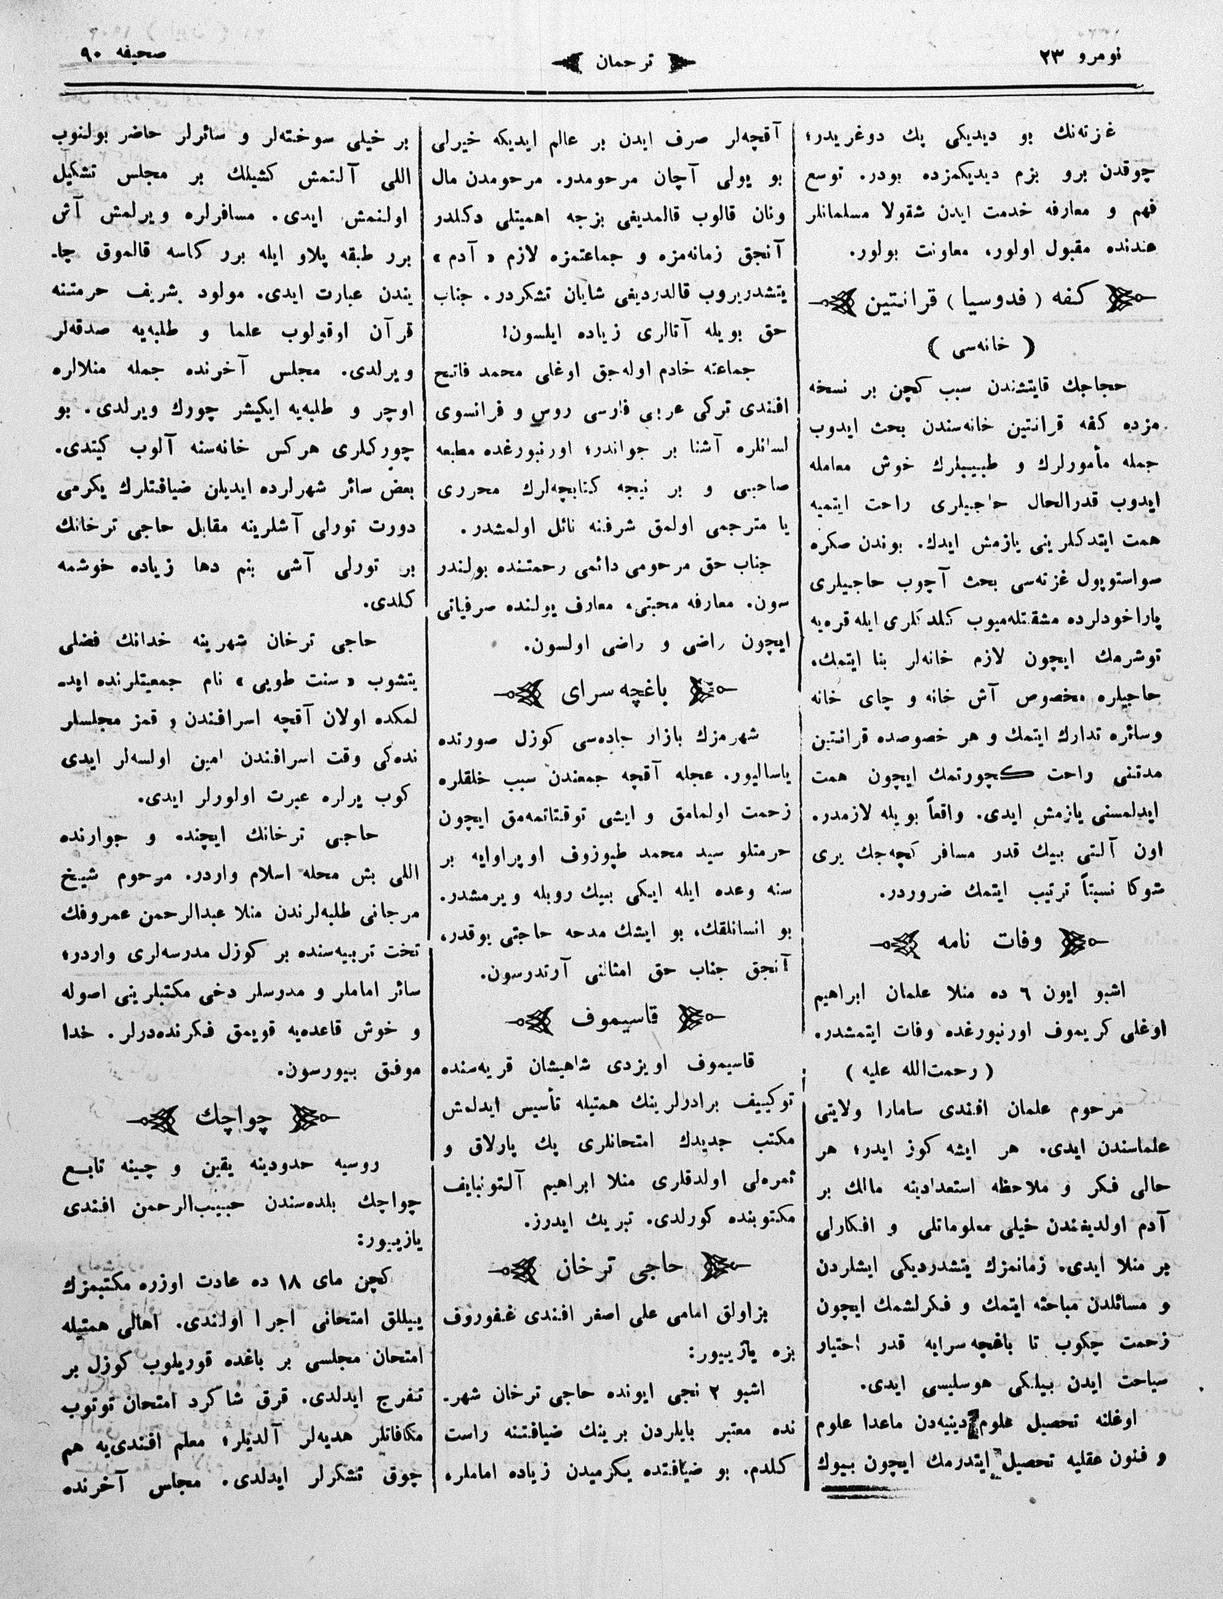 نومرو ٢٣
ترجمان
صحیفه ٩٠
غزته‌نك بو دیدیکی پك دوغریدر؛
چوقدن برو بزم دیدیکمزده بودر. توسع
فهم و معارفه خدمت ایدن شقولا مسلمانلر
عندنده مقبول اولور، معاونت بولور.
کفه (فدوسیا) قرانتین
(خانه‌سی)
حجاجك قایتشندن سبب کچن بر نسخه
مزده کفه قرانتین خانه‌سندن بحث ایدوب
جمله مأمورلرك و طبیبلرك خوش معامله
ایدوب قدرالحال حاجیلری راحت ایتمیه
همت ایتدکلرینی یازمش ایدك. بوندن صکره
سواستوپول غزته‌سی بحث آچوب حاجیلری
پاراخودلرده مشقتله‌میوب کلدکلری ایله قره‌یه
توشرمك ایچون لازم خانه‌لر بنا ایتمك،
حاجیلره مخصوص آش خانه و چای خانه
وسائره تدارك ایتمك و هر خصوصده قرانتین
مدتنی راحت کچورتمك ایچون همت
ایدلمسنی یازمش ایدی. واقعاً بویله لازمدر.
اون آلتی بیك قدر مسافر کچه‌جك یری
شوکا نسبتاً ترتیب ایتمك ضروردر.
وفات نامه
اشبو ایون ٦ ده منلا علمان ابراهیم
اوغلی کریموف اورنبورغده وفات ایتمشدر.
(رحمت‌الله علیه)
مرحوم علمان افندی سامارا ولایتی
علماسندن ایدی. هر ایشه کوز ایدر؛ هر
حالی فکر و ملاحظه استعدادینه مالك بر
آدم اولدیغندن خیلی معلوماتلی و افکارلی
بر منلا ایدی. زمانمزك یتشدردیکی ایشلردن
و مسائلدن مباحثه ایتمك و فکرلشمك ایچون
زحمت چکوب تا باغچه‌سرایه قدر اختیار
سیاحت ایدن بیلکی هوسلیسی ایدی.
اوغلنه تحصیل علوم دینیه‌دن ماعدا علوم
و فنون عقلیه تحصیل ایتدرمك ایچون بیوك
آقچه‌لر صرف ایدن بر عالم ایدیکه خیرلی
بو یولی آچان مرحومدر. مرحومدن مال
ونان قالوب قالمدیغی بزجه اهمیتلی دکلدر
آنجق زمانه‌مزه و جماعتمزه لازم «آدم»
یتشدریروب قالدردیغی شایان تشکردر. جناب
حق بویله آتالری زیاده ایلسون!
جماعته خادم اوله‌جق اوغلی محمد فاتح
افندی ترکی عربی فارسی روس و فرانسوی
لسانلره آشنا بر جواندر؛ اورنبورغده مطبعه
صاحبی و بر نیجه کتابچه‌لرك محرری
یا مترجمی اولمق شرفنه نائل اولمشدر.
جناب حق مرحومی دائمی رحمتنده بولندر
سون. معارفه محبتی، معارف یولنده صرفیاتی
ایچون راضی و راضی اولسون.
باغچه سرای
شهرمزك بازار جاده‌سی کوزل صورتده
یاسالیور. عجله آقچه جمعندن سبب خلقلره
زحمت اولمامق و ایشی توقتاتمه‌مق ایچون
حرمتلو سید محمد طپوزوف اوپراوایه بر
سنه وعده ایله ایکی بیك روبله ویرمشدر.
بو انسانلقك، بو ایشك مدحه حاجتی یوقدر،
آنجق جناب حق امثالنی آرتدرسون.
قاسیموف
قاسیموف اویزدی شاهیشان قریه‌سنده
توکییف برادرلرینك همتیله تأسیس ایدلمش
مکتب جدیدك امتحانلری پك پارلاق و
ثمره‌لی اولدقلری منلا ابراهیم آلتونبایف
مکتوبنده کورلدی. تبریك ایدرز.
حاجی ترخان
بزاولق امامی علی اصغر افندی غفوروف
بزه یازییور:
اشبو ٢ نجی ایونده حاجی ترخان شهر.
نده معتبر بایلردن برینك ضیافتنه راست
کلدم. بو ضیافتده یکرمیدن زیاده اماملر،
بر خیلی سوخته‌لر و سائرلر حاضر بولنوب
اللی آلتمش کشیلك بر مجلس تشکیل
اولنمش ایدی. مسافرلره ویرلمش آش
برر طبقه پلاو ایله برر کاسه قالموق چا.
یندن عبارت ایدی. مولود شریف حرمتنه
قرآن اوقولوب علما و طلبه‌یه صدقه‌لر
ویرلدی. مجلس آخرنده جمله منلالره
اوچر و طلبه‌یه ایکیشر چورك ویرلدی. بو
چورکلری هرکس خانه‌سنه آلوب کیتدی.
بعض سائر شهرلرده ایدیلن ضیافتلرك یکرمی
دورت تورلی آشلرینه مقابل حاجی ترخانك
بر تورلی آشی بنم دها زیاده خوشمه
کلدی.
حاجی ترخان شهرینه خدانك فضلی
یتشوب «سنت طویی» نام جمعیتلرنده اید.
لمکده اولان آقچه اسرافندن و قمز مجلسلر
نده‌کی وقت اسرافندن امین اولسه‌لر ایدی
کوب یرلره عبرت اولورلر ایدی.
حاجی ترخانك ایچنده و جوارنده
اللی بش محله اسلام واردر. مرحوم شیخ
مرجانی طلبه‌لرندن منلا عبدالرحمن عمروفك
تخت تربیه‌سنده بر کوزل مدرسه‌لری واردر؛
سائر اماملر و مدرسلر دخی مکتبلرینی اصوله
و خوش قاعده‌یه قویمق فکرنده‌درلر. خدا
موفق بیورسون.
چواچك
روسیه حدودینه یقین و چینه تابع
چواچك بلده‌سندن حبیب‌الرحمن افندی
یازییور:
کچن مای ١٨ ده عادت اوزره مکتبمزك
ییللق امتحانی اجرا اولندی. اهالی همتیله
امتحان مجلسی بر باغده قوریلوب کوزل بر
تفرج ایدلدی. قرق شاکرد امتحان توتوب
مکافاتلر هدیه‌لر آلدیلر؛ معلم افندی‌یه هم
چوق تشکرلر ایدلدی. مجلس آخرنده